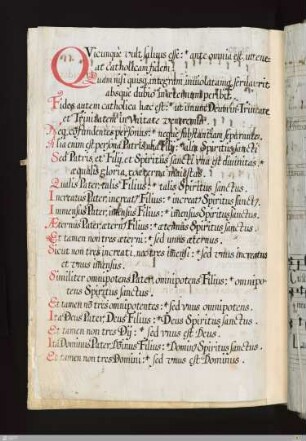 Quicunque vult salvus esse: * ante omnia est ut tene-
at catholicam fidem.
Quam nisi quisq integram inviolatamq servaverit
absque dubio in æternum peribit.
Fides autem catholica hæc est: * ut unum Deum in Trinitate
et Trinitatem in Unitate veneremur.
Neq confundentes personas: * neque substantiam separantes.
Alia enim est persona Patris, alia Filij: * alia Spiritus sancti
Sed Patris, et Filij, et Spiritus sancti vna est divinitas: *
æqualis gloria, coæterna maiestas.
Qualis Pater, talis Filius: * talis Spiritus sanctus.
Increatus Pater, increat Filius: * increat Spiritus sanct.
Immensus Pater, imensus Filius: * imensus Spiritus sanctus.
Æternus Pater,ætern Filius: * æternus Spiritus Sanctus.
Et tamen non tres æterni: * sed unus æternus.
Sicut non tres increati, nec tres imensi: * sed vnus increatus
et vnus imensus.
Similiter omnipotens Pater, omnipotens Filius: * omnipo-
tens Spiritus sanctus.
Et tamen nō tres omnipotentes: * sed vnus omnipotens.
Ita Deus Pater, Deus Filius: * Deus Spiritus sanctus.
Et tamen non tres Dij: * sed vnus est Deus.
Ita Dominus Pater, Dōinus Filius: * Domin Spiritus sanctus.
Et tamen non tres Domini: * sed vnus est Dominus.